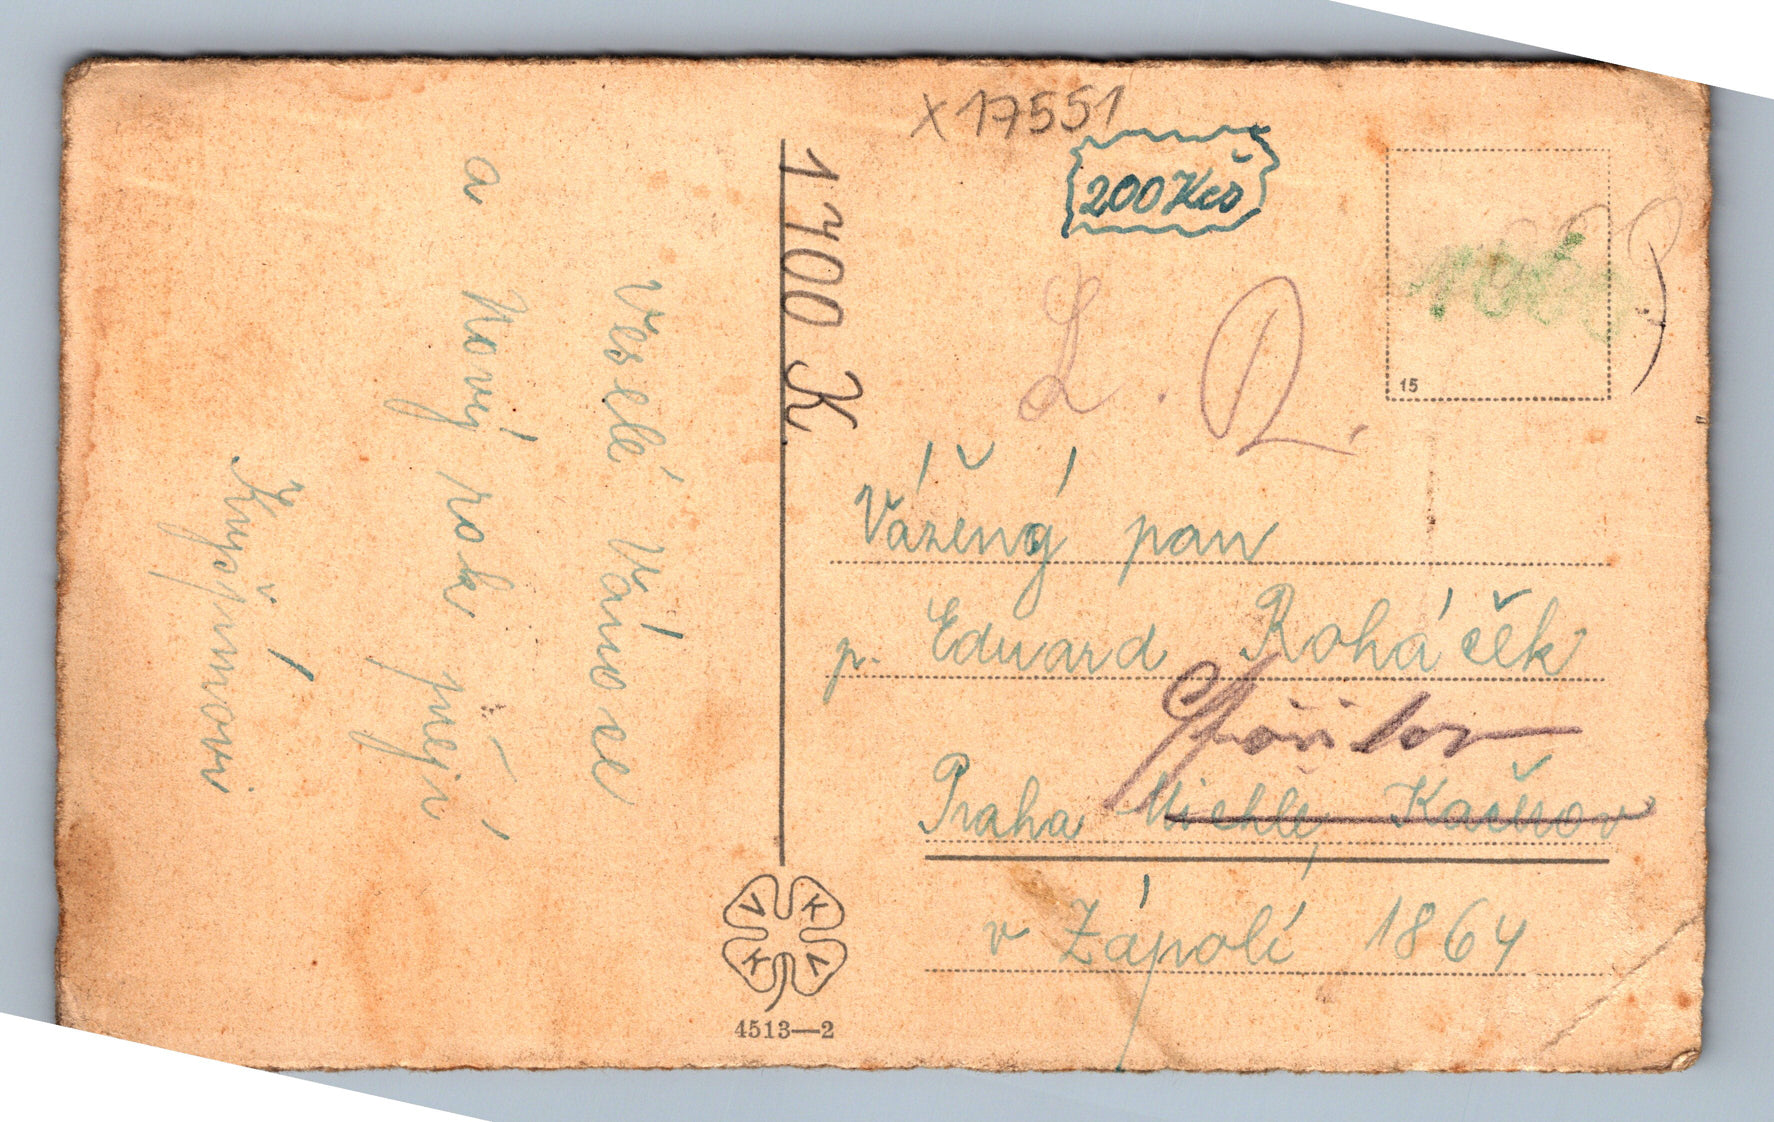 Veselé Vánoce
a Nový rok přejí
x 17551
200 Kčs
1700 K
L. D.
15
Vážený pan
p. Eduard Roháček
Spořilov
Praha Michle, Kačerov
v Zápolí 1864
V K K V
4513—2